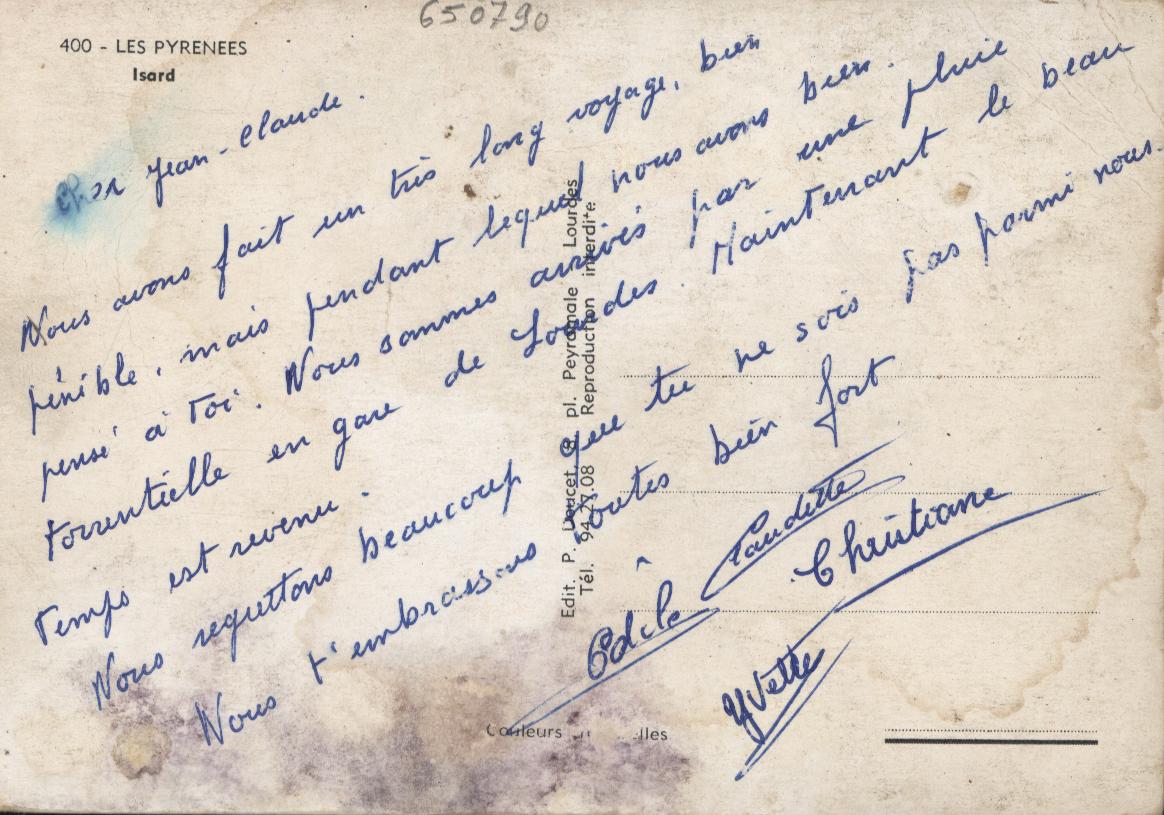 650790
400 - LES PYRENEES
Isard
Cher Jean-Claude.
Nous avons fait un très long voyage, bien
pénible, mais pendant lequel nous avons bien
pensé à toi. Nous sommes arrivés par une pluie
torrentielle en gare de Lourdes. Maintenant le beau
temps est revenu.
Nous regrettons beaucoup que tu ne sois pas parmi nous.
Nous t'embrassons toutes bien fort
Claudette
Odile
Christiane
Yvette
Edit. P. Doucet, 8 pl. Peyramale Lourdes
Tél. 94.27.08 Reproduction interdite
Couleurs